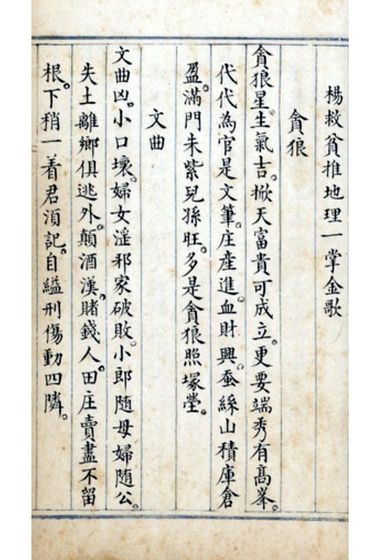 楊救貧推地理一掌金歌
貪狼
貪狼星。生氣吉。掀天富貴可成立。更要端秀有高峯。
代代為官是文筆。庄產進。血財興。蚕絲山積庫倉
盈。滿門朱紫兒孫旺。多是貪狼照塚塋。
文曲
文曲凶。小口壞。婦女淫邪家破敗。小郎隨母婦隨公。
失土離鄉俱逃外。顛酒漢。賭錢人。田庄賣盡不留
根。下稍一着君須記。自縊刑傷動四隣。